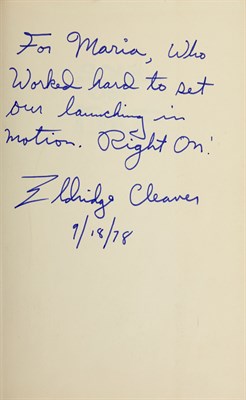 For Maria, Who
Worked hard to set
our launching in
motion. Right On!
Eldridge Cleaver
9/18/78